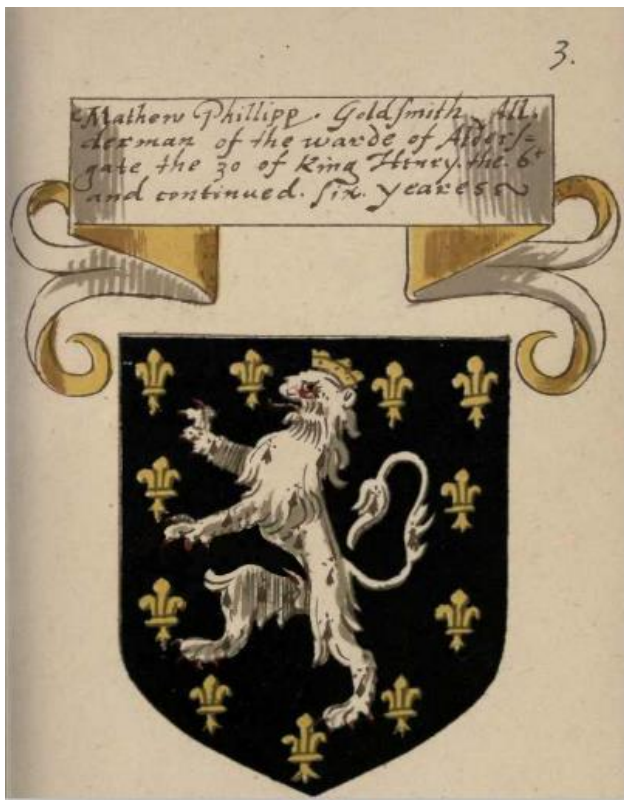 3.
Mathew Phillipp. Goldsmith. All:
derman of the warde of Alders=
gate the 30 of King Henry. the. 6t
and continued. six. yeares